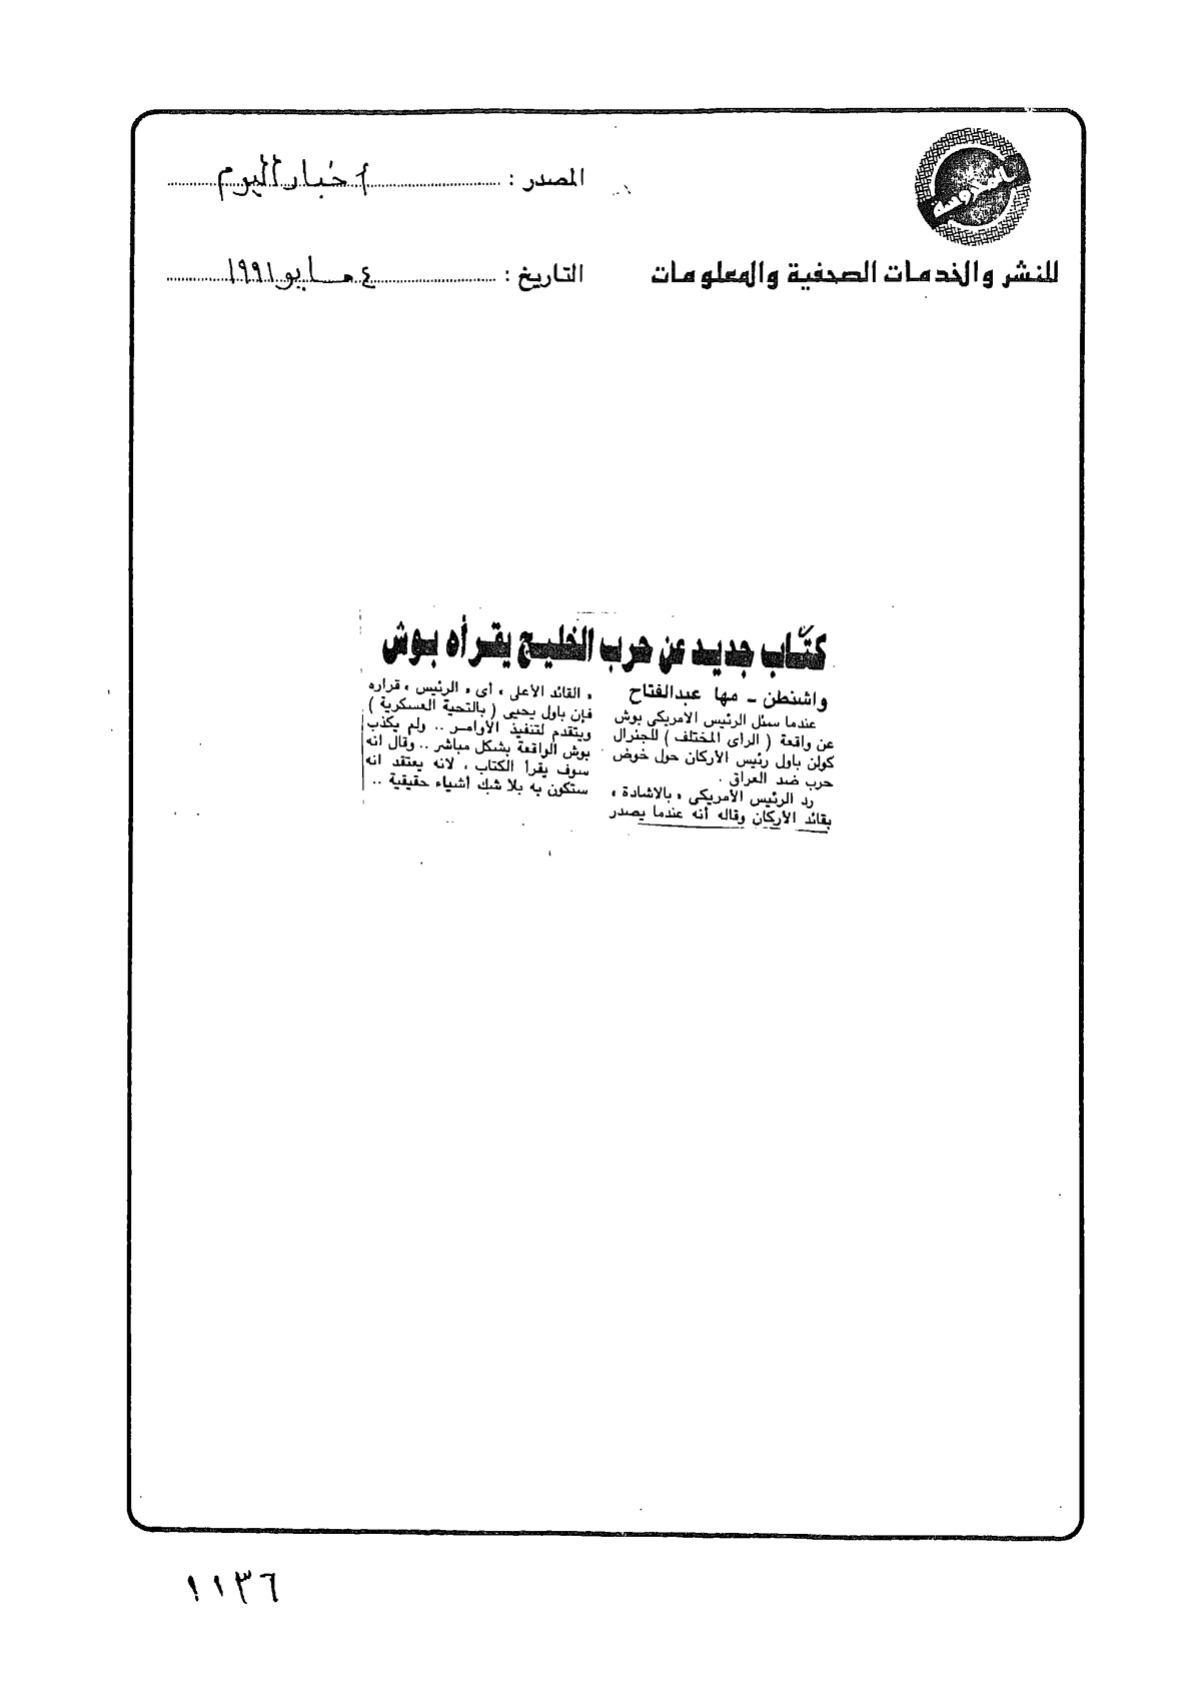 المحروسة
المصدر : أخبار اليوم
للنشر والخدمات الصحفية والمعلومات
التاريخ : ٤ مايو ١٩٩١
كتاب جديد عن حرب الخليج يقرأه بوش
واشنطن - مها عبدالفتاح
عندما سئل الرئيس الأمريكى بوش
عن واقعة ( الراى المختلف ) للجنرال
كولن باول رئيس الأركان حول خوض
حرب ضد العراق .
رد الرئيس الأمريكى « بالاشادة »
بقائد الأركان وقاله أنه عندما يصدر
« القائد الأعلى » أى « الرئيس » قراره
فإن باول يحيى ( بالتحية العسكرية )
ويتقدم لتنفيذ الأوامر .. ولم يكذب
بوش الواقعة بشكل مباشر .. وقال انه
سوف يقرأ الكتاب ، لانه يعتقد انه
ستكون به بلا شك أشياء حقيقية ..
١١٣٦